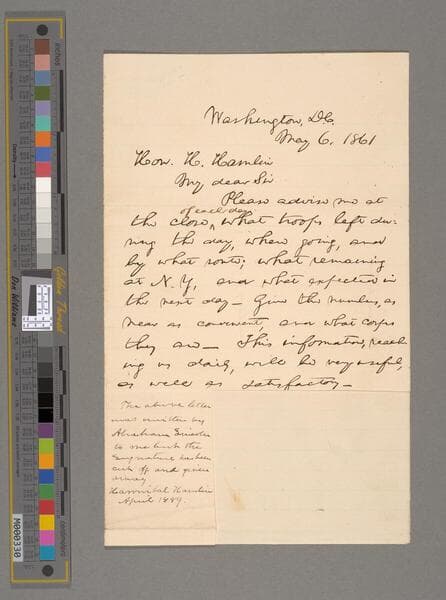 Washington, D.C.
May 6, 1861
Hon. H. Hamlin
My dear Sir
Please advise me at
of each day
the close, what troops left du-
ring the day, where going, and
by what route; what remaining
at N.Y., and what expected in
the next day— Give the numbers, as
near as convenient, and what corps
they are— This information, reach-
ing us daily, will be very useful,
as well as satisfactory—
The above letter
was written by
Abraham Lincoln
to me but the
Signature has been
cut off and given
away
Hannibal Hamlin
April 1889.
inches
centimeters
Golden Thread
M000330